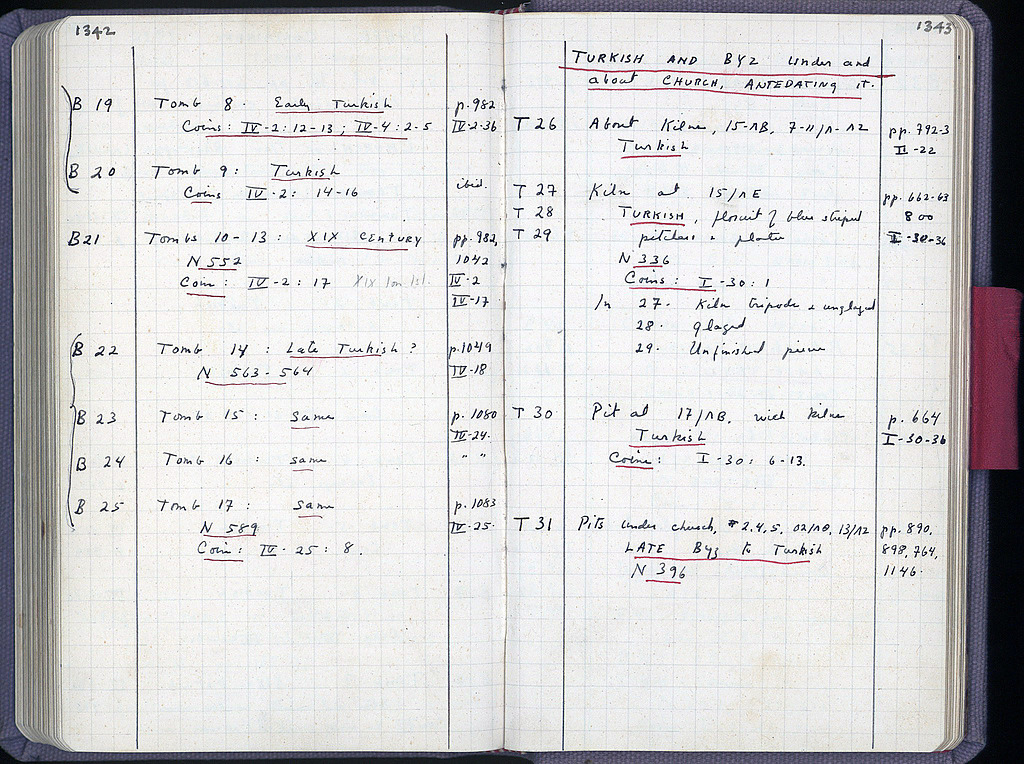 1342
B 19 Tomb 8. Early Turkish p. 982
Coins: IV-2: 12-13; IV-4: 2-5 IV-2-36
B 20 Tomb 9: Turkish
Coins IV-2: 14-16 ibid.
B21 Tombs 10-13: XIX CENTURY pp. 982,
N 552 1042
Coin: IV-2: 17 XIX IV-2
IV-17
B 22 Tomb 14: Late Turkish? p. 1049
N 563-564 IV-18
B 23 Tomb 15: same p. 1080
IV-24.
B 24 Tomb 16: same " "
B 25 Tomb 17: same p. 1083
N 589 IV-25.
Coin: IV-25: 8.
1343
TURKISH AND BYZ under and
about CHURCH, ANTEDATING it.
T 26 About Kilns, 15-ΛB, pp. 792-3
Turkish II-22
T 27 Kiln at 15/ΛE pp. 662-63
T 28 TURKISH, floruit of blue striped 800
T 29 pitchers & plates -30-36
N 336
Coins: I-30: 1
In 27. Kiln tripods & unglazed
28. glazed
29. Unfinished pieces
T 30 Pit at 17/ΛB. with kilns p. 664
Turkish I-30-36
Coins: I-30: 6-13.
T 31 Pits under church, # 2, 4, 5, 02/ΛΘ, 13/ΛZ pp. 890,
LATE Byz to Turkish 898, 764,
N 396 1146.